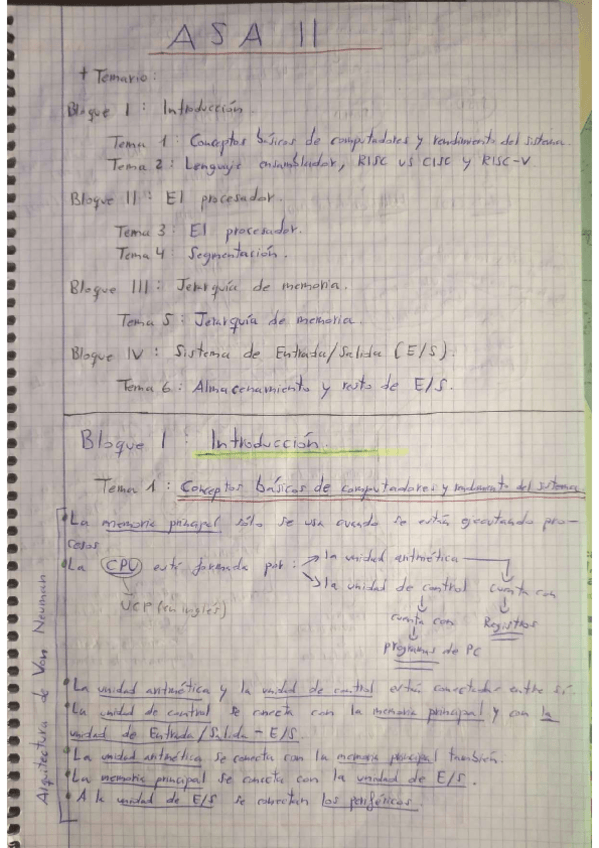 ASA II
+ Temario:
Bloque I: Introducción.
Tema 1: Conceptos básicos de computadores y rendimiento del sistema.
Tema 2: Lenguaje ensamblador, RISC vs CISC y RISC-V
Bloque II: El procesador.
Tema 3: El procesador.
Tema 4: Segmentación.
Bloque III: Jerarquía de memoria.
Tema 5: Jerarquía de memoria.
Bloque IV: Sistema de Entrada/Salida (E/S).
Tema 6: Almacenamiento y resto de E/S.
Bloque I: Introducción.
Tema 1: Conceptos básicos de computadores y rendimiento del sistema
• La memoria principal sólo se usa cuando se están ejecutando pro-
cesos
• La CPU está formada por: → la unidad aritmética → cuenta con → Registros
→ la unidad de control → cuenta con → programas de PC
UCP (en inglés)
• La unidad aritmética y la unidad de control están conectadas entre sí.
• La unidad de control se conecta con la memoria principal y con la
unidad de Entrada/Salida - E/S.
• La unidad aritmética se conecta con la memoria principal también.
• La memoria principal se conecta con la unidad de E/S.
• A la unidad de E/S se conectan los periféricos.
Arquitectura de Von Neuman